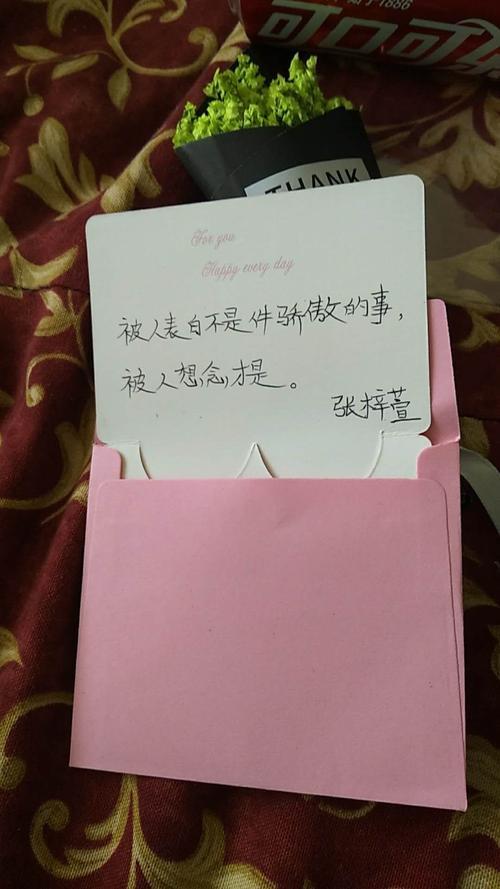 1886
可口可
THANK
For you
Happy every day
被人表白不是件骄傲的事，
被人想念才是。
张梓萱